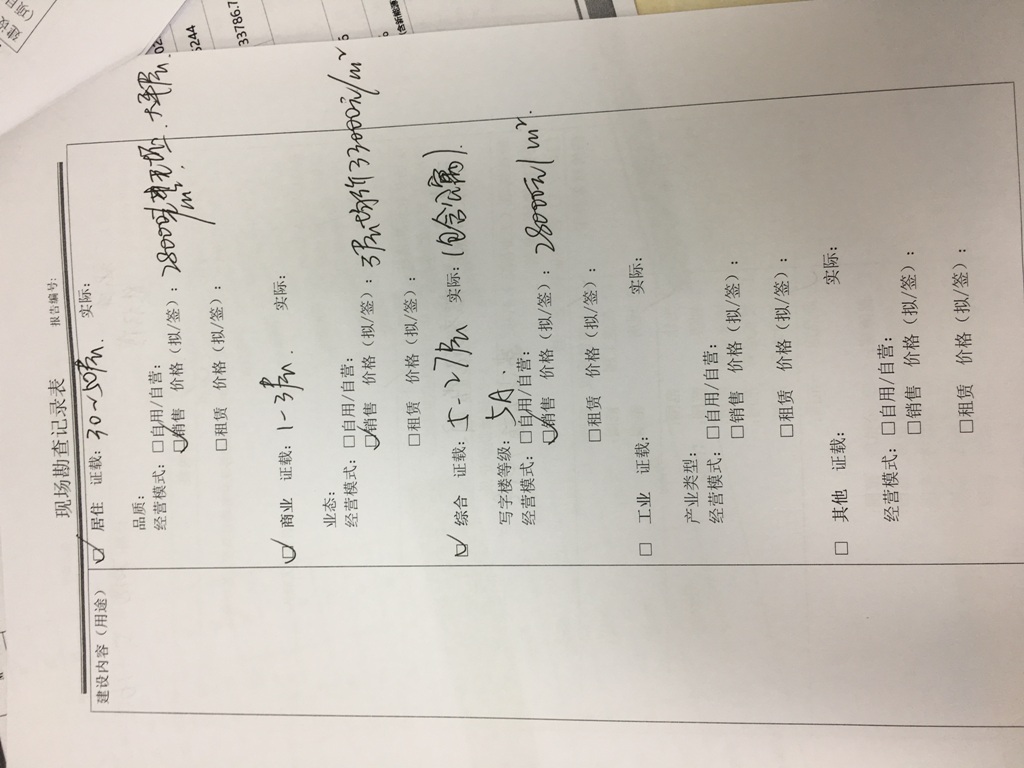 现场勘查记录表
报告编号:
建设内容（用途）
居住 证载: 30~50层. 实际:
品质:
经营模式: □自用/自营:
销售 价格（拟/签）: 28000元/m² 大平层.
□租赁 价格（拟/签）:
商业 证载: 1-3层. 实际:
业态:
经营模式: □自用/自营:
销售 价格（拟/签）: 3层均价33000元/m²
□租赁 价格（拟/签）:
综合 证载: 5-27层 实际: (包含公寓).
写字楼等级: 5A.
经营模式: □自用/自营:
销售 价格（拟/签）: 28000元/m².
□租赁 价格（拟/签）:
□ 工业 证载: 实际:
产业类型:
经营模式: □自用/自营:
□销售 价格（拟/签）:
□租赁 价格（拟/签）:
□ 其他 证载: 实际:
经营模式: □自用/自营:
□销售 价格（拟/签）:
□租赁 价格（拟/签）:
5244
33786.7
建设
(项目